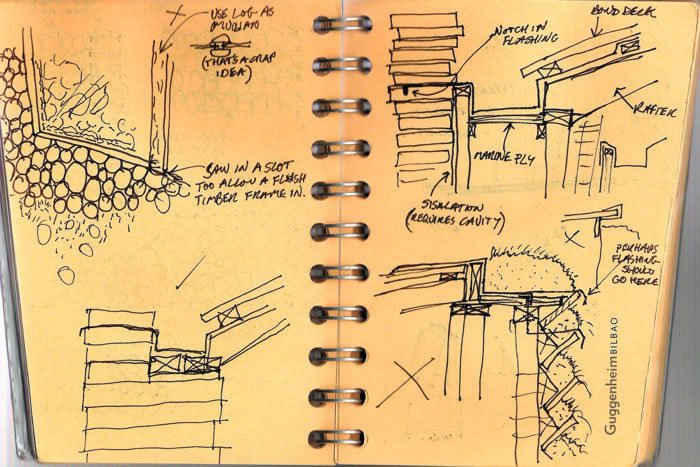 USE LOG AS
MULLION
(THATS A CRAP
IDEA)
SAW IN A SLOT
TOO ALLOW A FLUSH
TIMBER FRAME IN.
BOND DECK
NOTCH IN
FLASHING
RAFTER
MARINE PLY
SISALATION
(REQUIRES CAVITY)
PERHAPS
FLASHING
SHOULD
GO HERE
GuggenheimBILBAO